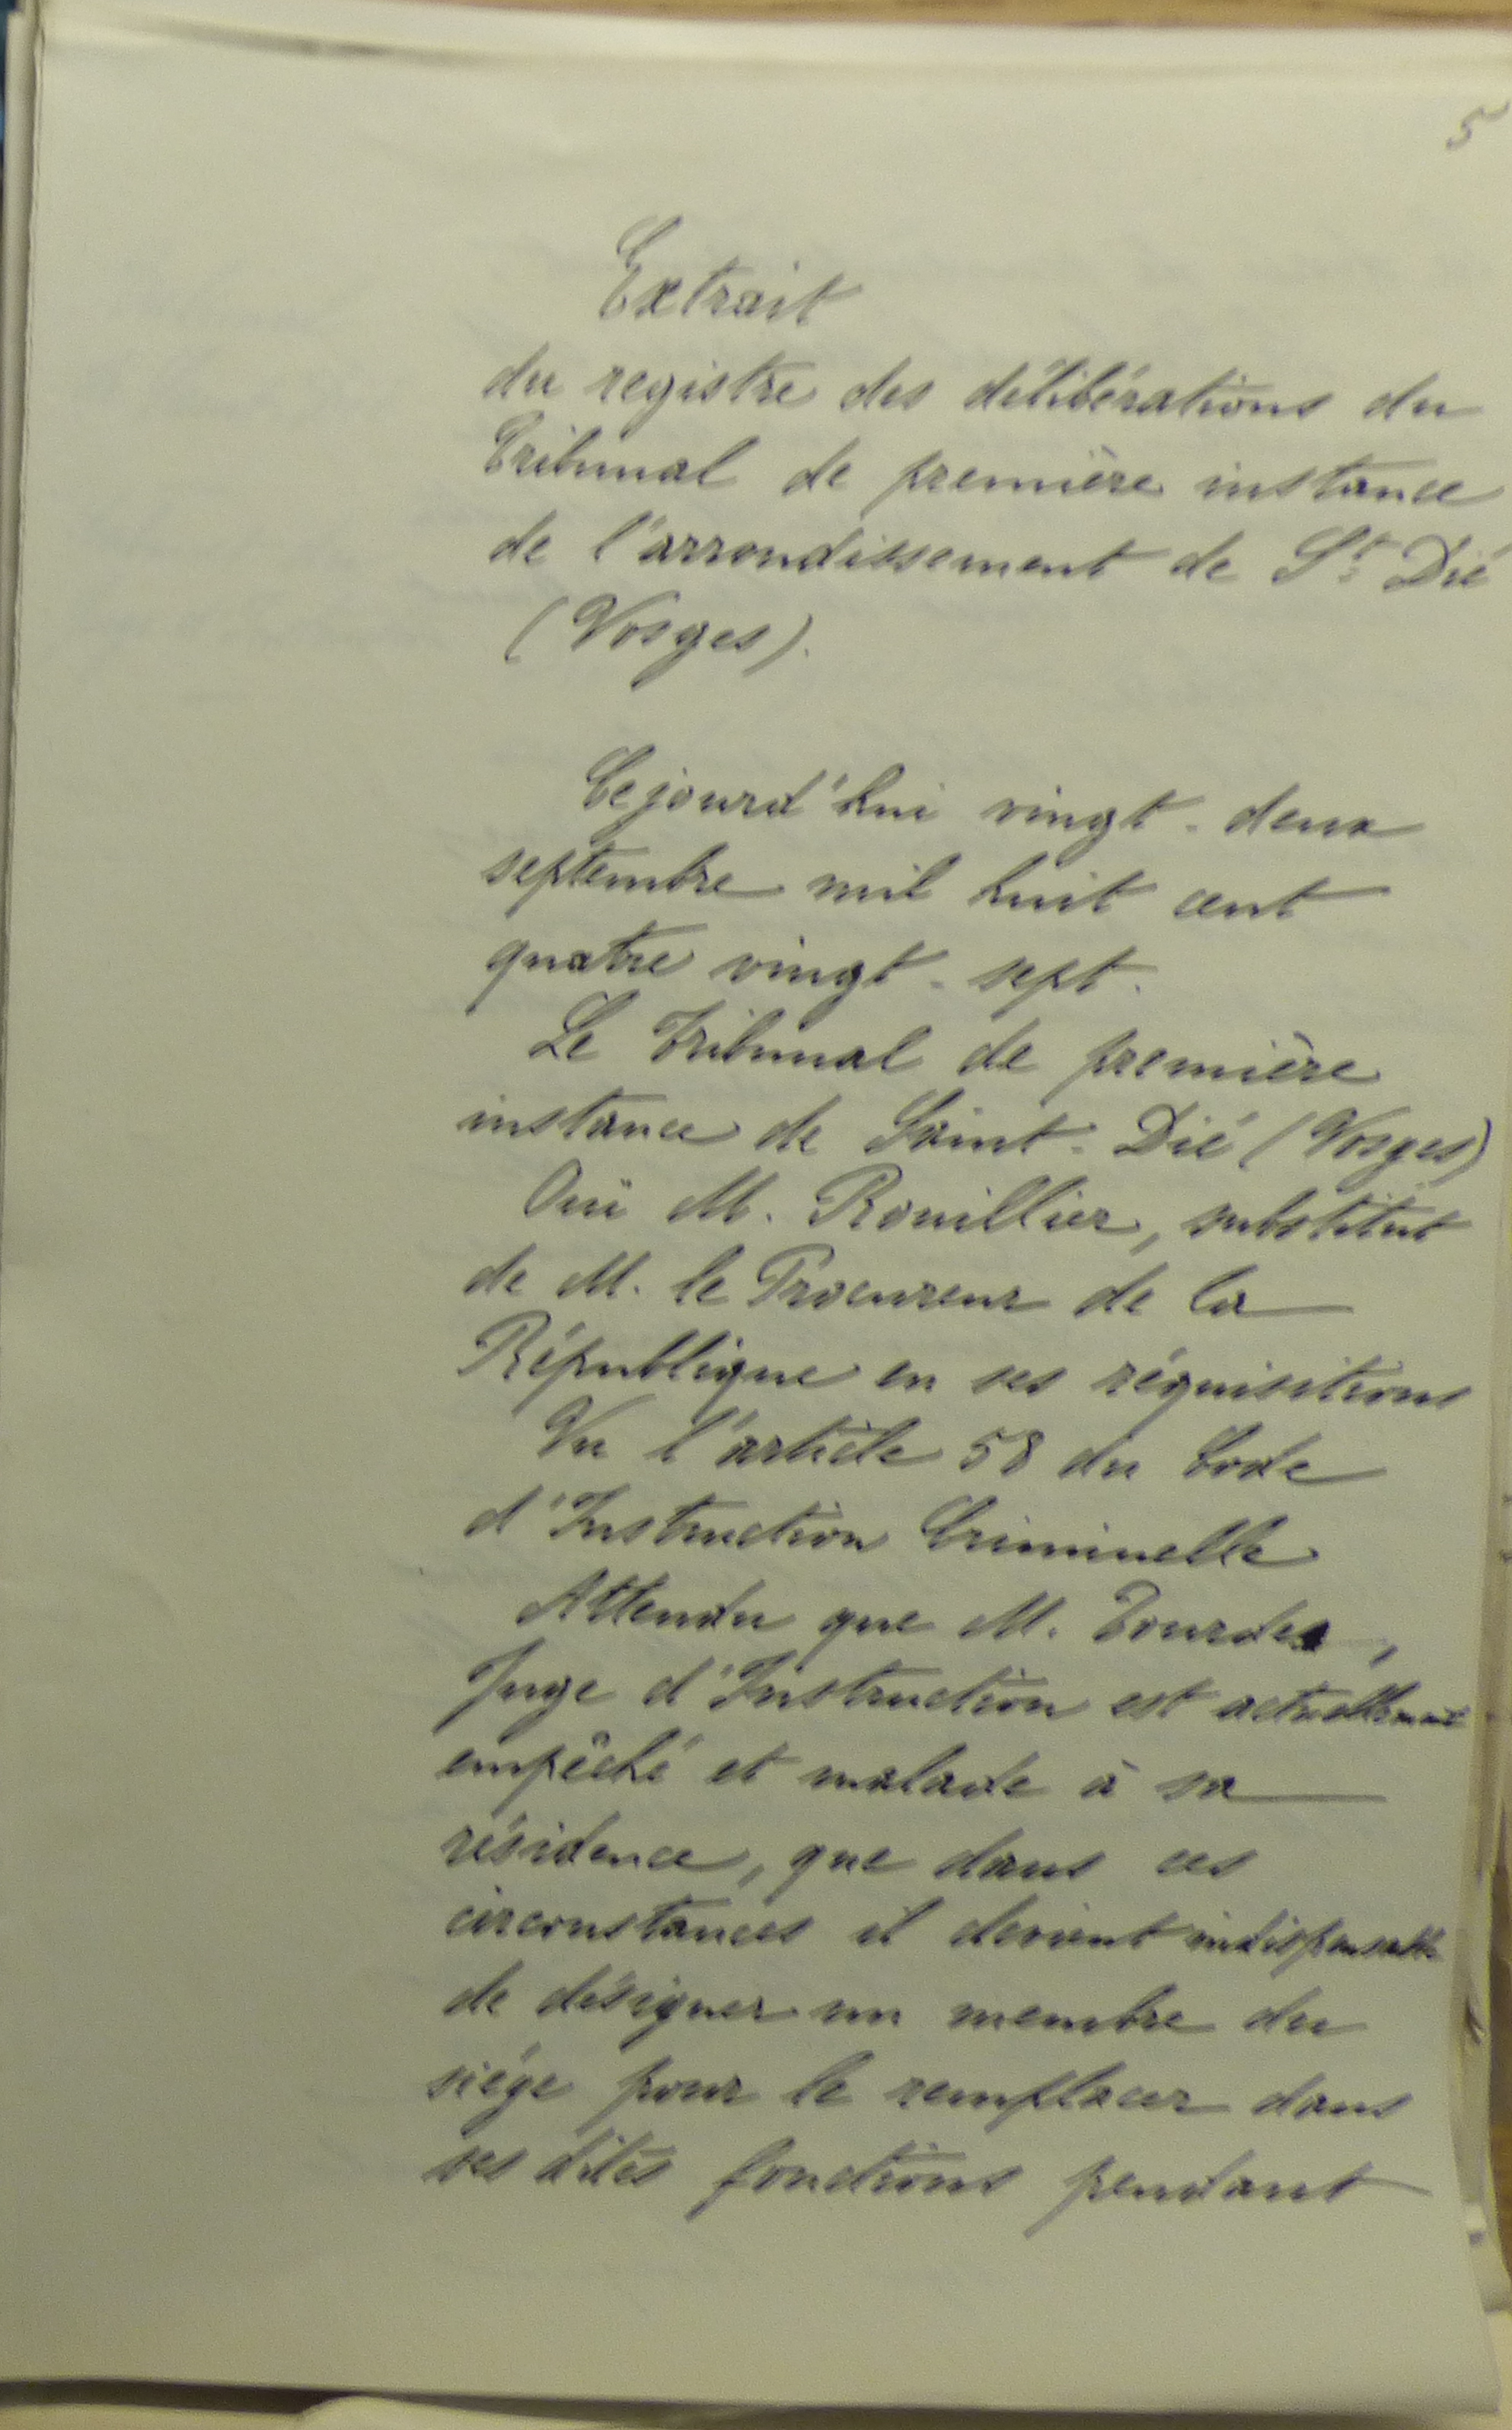 5
Extrait
du registre des délibérations du
Tribunal de première instance
de l'arrondissement de St Dié
(Vosges).
Cejourd'hui vingt-deux
septembre mil huit cent
quatre vingt-sept.
Le Tribunal de première
instance de Saint-Dié (Vosges)
Ouï M. Rouillier, substitut
de M. le Procureur de la
République en ses réquisitions
Vu l'article 58 du Code
d'Instruction Criminelle
Attendu que M. Tourdes,
Juge d'Instruction est actuellement
empêché et malade à sa
résidence, que dans ces
circonstances il devient indispensable
de désigner un membre du
siège pour le remplacer dans
ses dites fonctions pendant